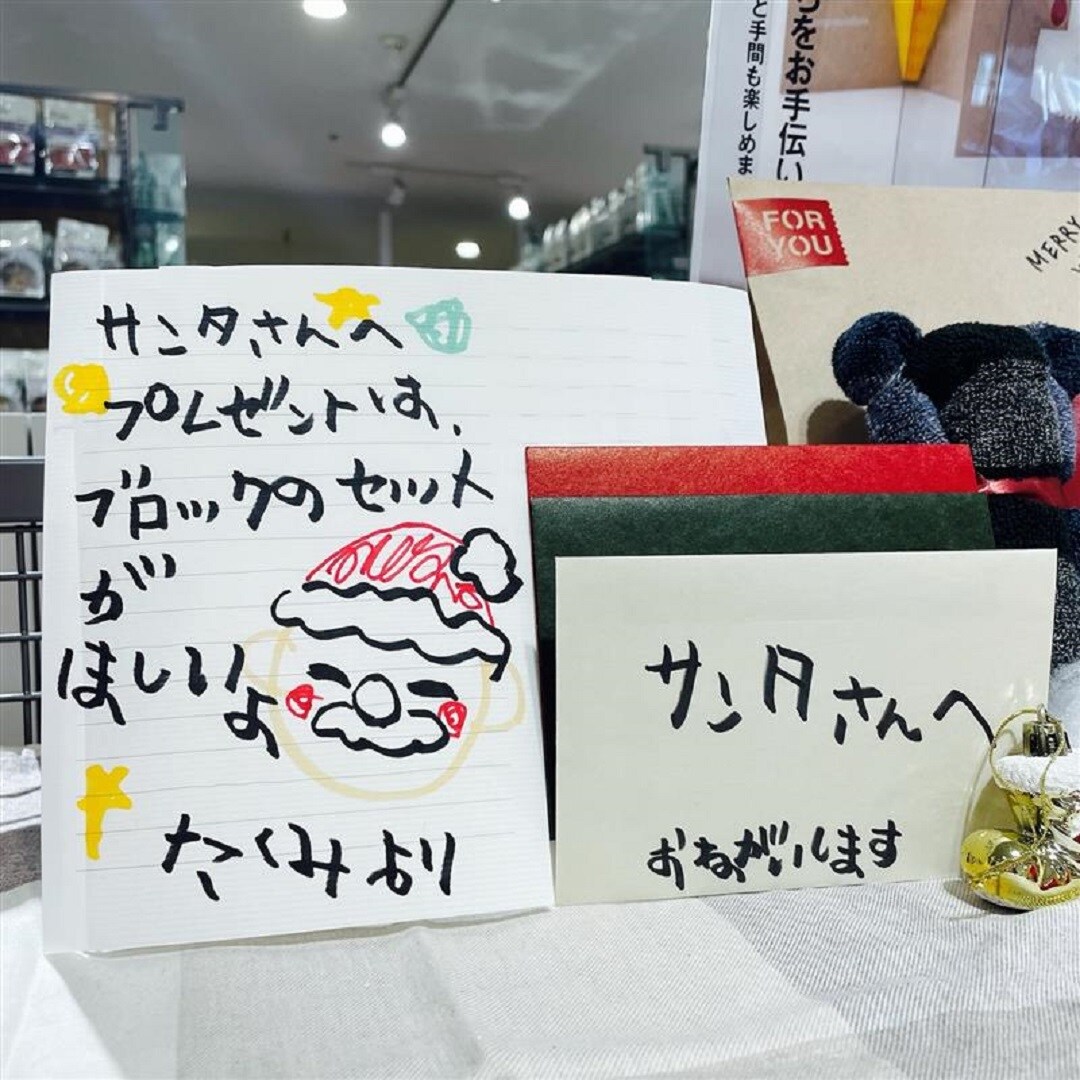 サンタさんへ
プレゼントは、
ブロックのセット
が
ほしいよ
たくみより
サンタさんへ
おねがいします
FOR
YOU
MERRY
をお手伝い
と手間も楽しめま